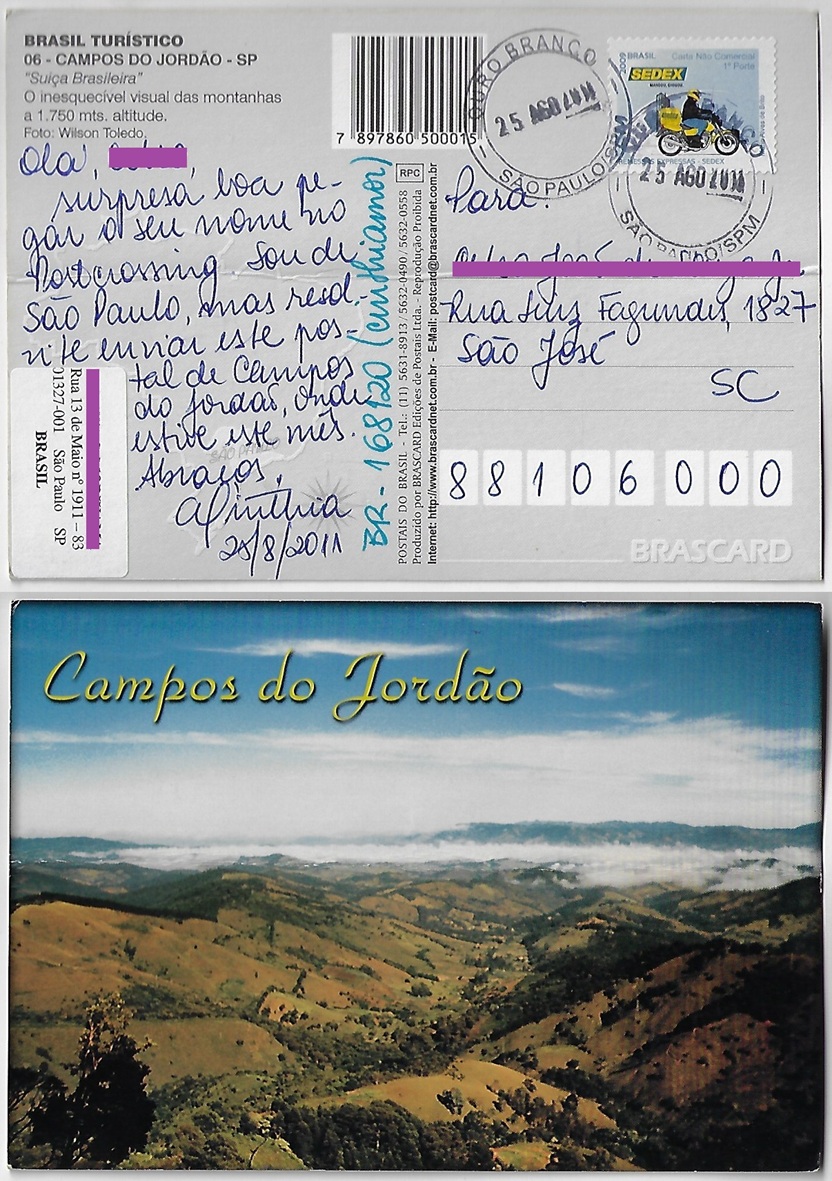 BRASIL TURÍSTICO
06 - CAMPOS DO JORDÃO - SP
"Suiça Brasileira"
O inesquecível visual das montanhas
a 1.750 mts. altitude.
Foto: Wilson Toledo.
7 897860 500015
Olá,
surpresa boa pe-
gar o seu nome no
Postcrossing. Sou de
São Paulo, mas resol-
vi te enviar este pos-
tal de Campos
do Jordão, onde
estive este mês.
Abraços,
Cinthia
25/8/2011
Rua 13 de Maio nº 1911 – 83
01327-001 São Paulo SP
BRASIL
SÃO PAULO
BR - 168120 (cinthiamor)
RPC
POSTAIS DO BRASIL - Tel.: (11) 5631-8913 / 5632-0490 / 5632-0558
Produzido por BRASCARD Edições de Postais Ltda. - Reprodução Proibida
Internet: http://www.brascardnet.com.br - E-Mail: postcard@brascardnet.com.br
OURO BRANCO
25 AGO 2011
SÃO PAULO/SPM
2009 BRASIL Carta Não Comercial
1º Porte
SEDEX
REMESSAS EXPRESSAS - SEDEX
OURO BRANCO
25 AGO 2011
SÃO PAULO/SPM
Para:
Rua Luiz Fagundes, 1827
São José
SC
88106000
BRASCARD
Campos do Jordão